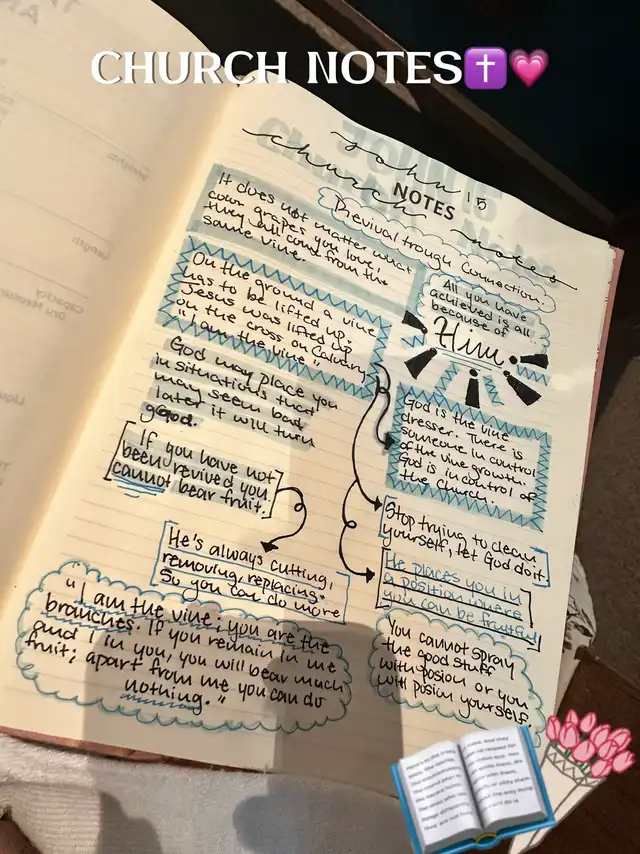 CHURCH NOTES✝️💗
John 15
church notes
NOTES
Previval trough Connection.
It does not matter what
coun grapes you love,
they will come from the
same vine.
All you have
achieved is all
because of
Him
On the ground a vine
has to be lifted up,
Jesus was lifted up
on the cross on Calvary
"I am the vine"
God may place you
in situations that
may seem bad
later it will turn
good.
God is the vine
dresser. There is
someone in control
of the vine growth.
God is in control of
the church.
If you have not
been revived you
cannot bear fruit.
Stop trying to clean
yourself, let God do it.
He's always cutting,
removing, replacing
So you can do more
He places you in
a position where
you can be fruitful
"I am the vine; you are the
branches. If you remain in me
and I in you, you will bear much
fruit; apart from me you can do
nothing."
You cannot spray
the good stuff
with posion or you
will posion yourself.
Length
Capacity